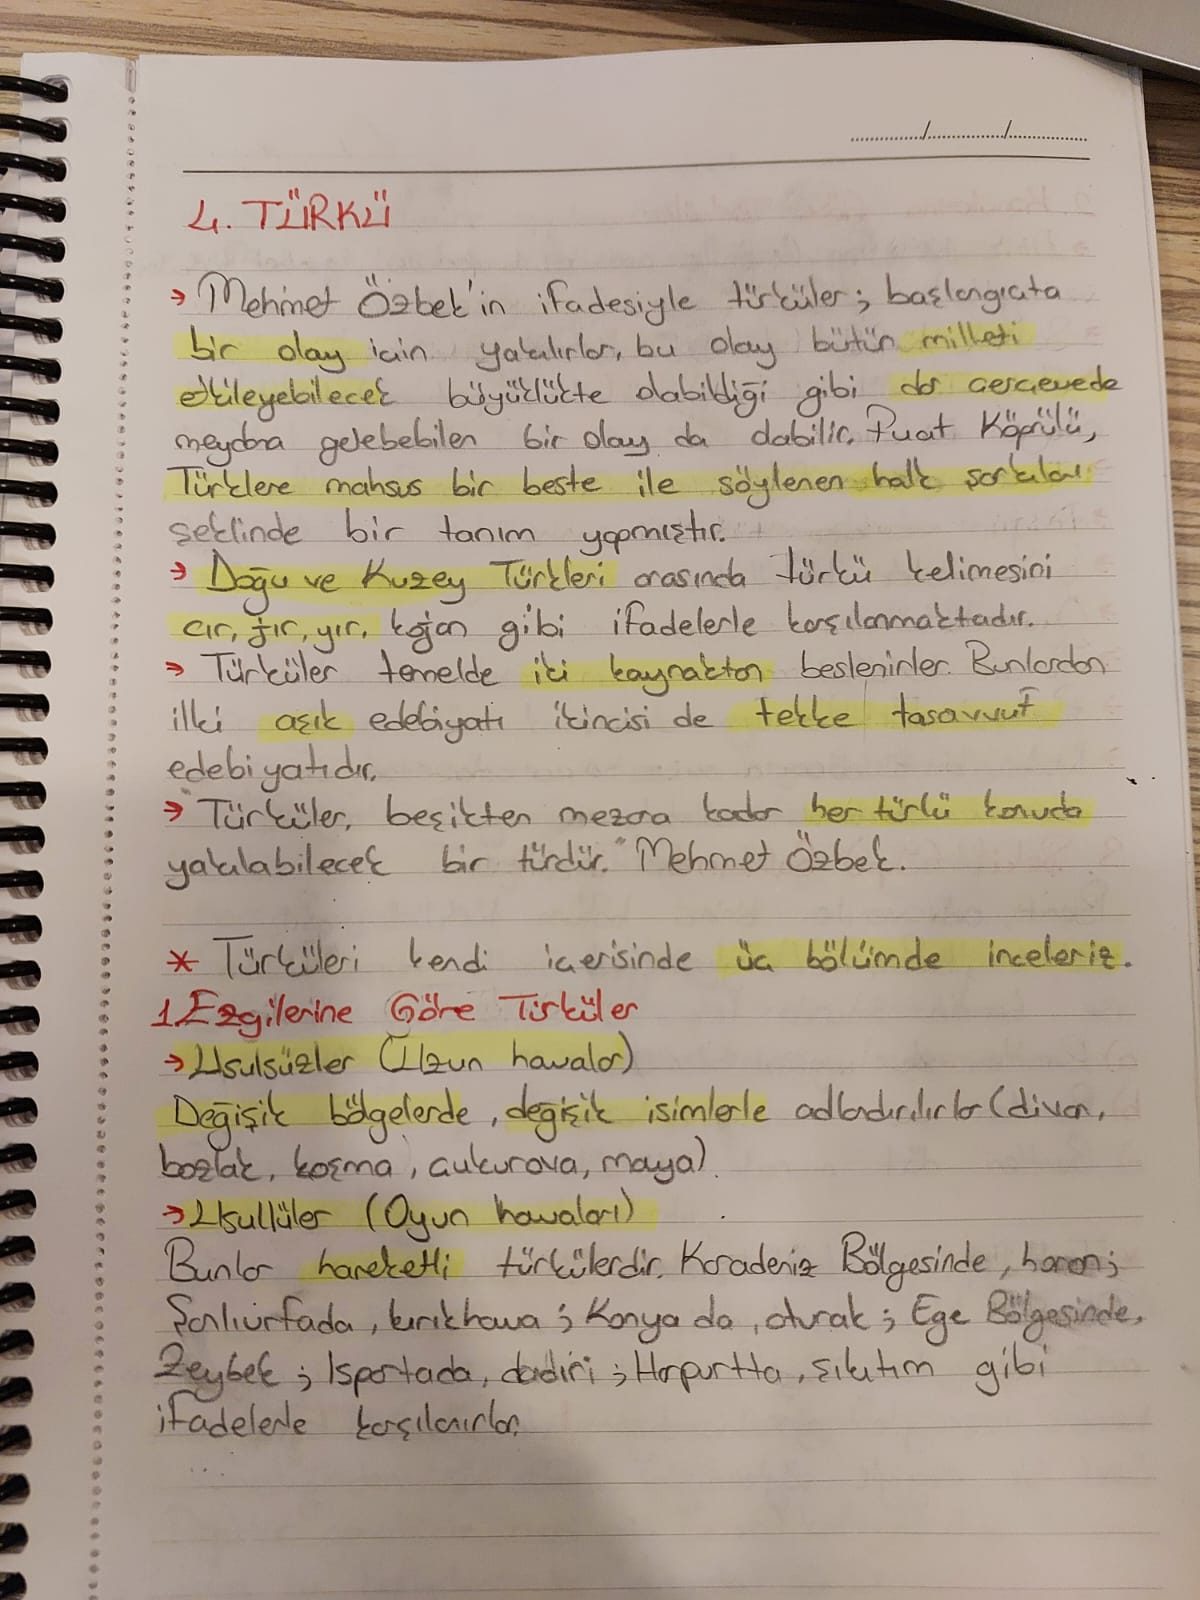 4. TÜRKÜ
→ Mehmet Özbek'in ifadesiyle türküler; başlangıçta
bir olay için yakılırlar, bu olay bütün milleti
etkileyebilecek büyüklükte olabildiği gibi dar çerçevede
meydana gelebebilen bir olay da olabilir. Fuat Köprülü,
Türklere mahsus bir beste ile söylenen halk şarkıları
şeklinde bir tanım yapmıştır.
→ Doğu ve Kuzey Türkleri arasında türkü kelimesini
cır, jır, yır, kojan gibi ifadelerle karşılanmaktadır.
→ Türküler temelde iki kaynaktan beslenirler. Bunlardan
ilki aşık edebiyatı ikincisi de tekke tasavvuf
edebiyatıdır.
→ "Türküler, beşikten mezara kadar her türlü konuda
yakılabilecek bir türdür." Mehmet Özbek.
* Türküleri kendi içerisinde üç bölümde inceleriz.
1. Ezgilerine Göre Türküler
→ Usulsüzler (Uzun havalar)
Değişik bölgelerde, değişik isimlerle adlandırılırlar (divan,
bozlak, koşma, çukurova, maya).
→ Usullüler (Oyun havaları)
Bunlar hareketli türkülerdir. Karadeniz Bölgesinde, horon;
Şanlıurfada, kırıkhava; Konya da, oturak; Ege Bölgesinde,
Zeybek; Ispartada, dadiri; Harputta, şıkıtım gibi
ifadelerle karşılanırlar.